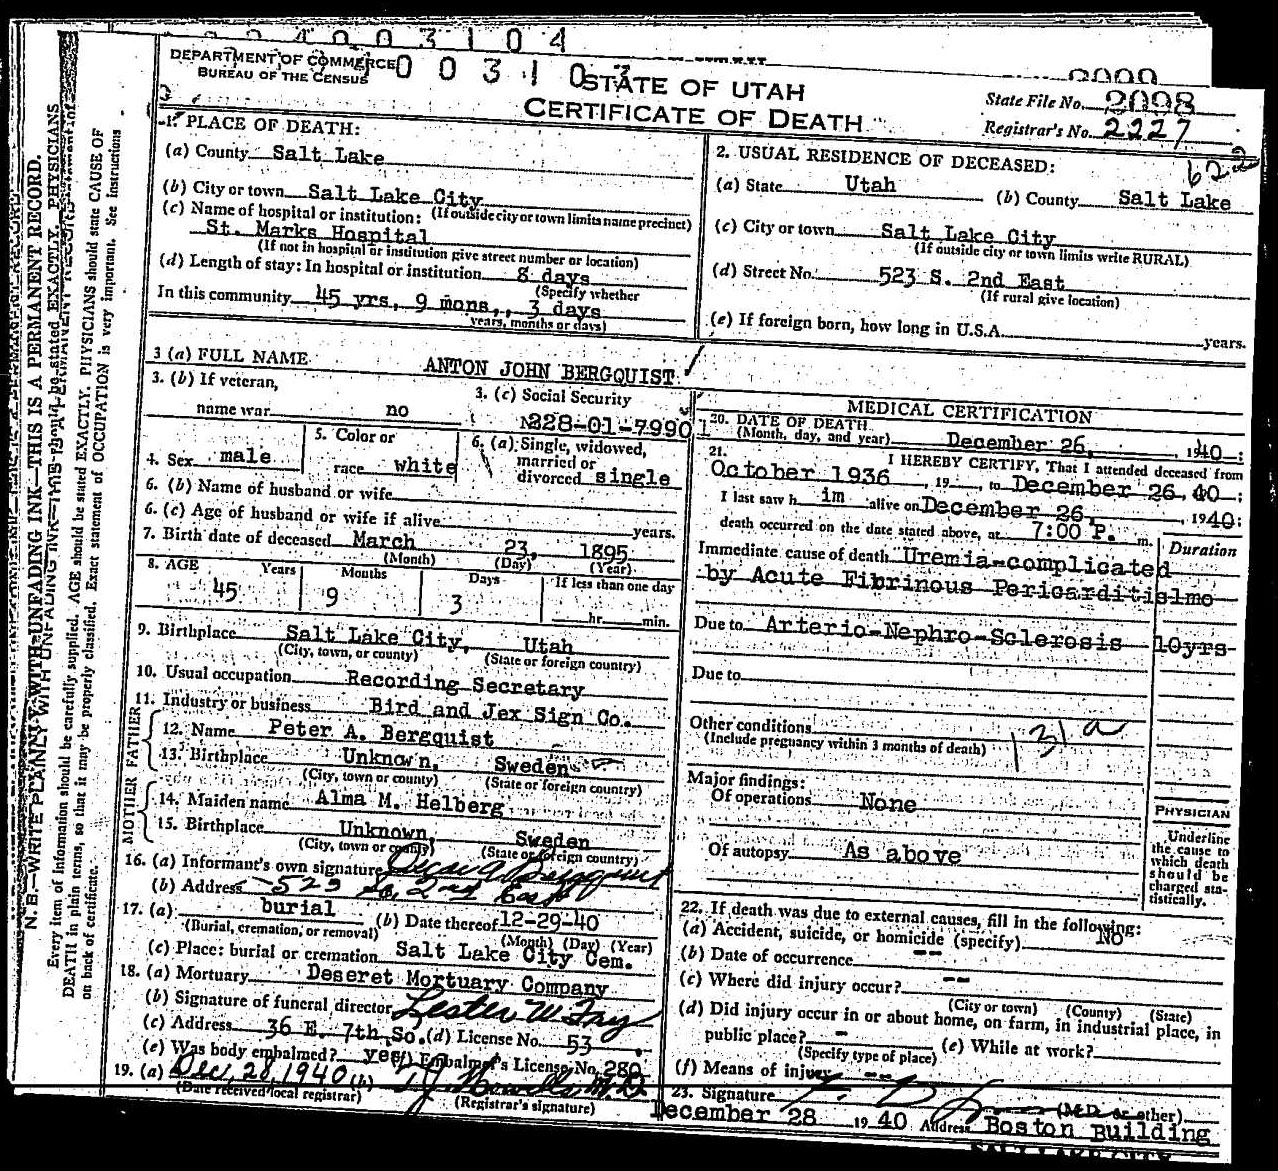 003103
DEPARTMENT OF COMMERCE
BUREAU OF THE CENSUS
STATE OF UTAH
CERTIFICATE OF DEATH
State File No. 2098
Registrar's No. 2227
1. PLACE OF DEATH:
(a) County Salt Lake
(b) City or town Salt Lake City
(If outside city or town limits name precinct)
(c) Name of hospital or institution:
St. Marks Hospital
(If not in hospital or institution give street number or location)
(d) Length of stay: In hospital or institution 8 days
(Specify whether
In this community 45 yrs, 9 mons,, 3 days
years, months or days)
2. USUAL RESIDENCE OF DECEASED:
(a) State Utah (b) County Salt Lake
(c) City or town Salt Lake City
(If outside city or town limits write RURAL)
(d) Street No. 523 S. 2nd East
(If rural give location)
(e) If foreign born, how long in U.S.A. years.
3 (a) FULL NAME ANTON JOHN BERGQUIST
3. (b) If veteran,
name war no
3. (c) Social Security
4. Sex male
5. Color or
race white
6. (a) Single, widowed,
married or
divorced single
6. (b) Name of husband or wife
6. (c) Age of husband or wife if alive years.
7. Birth date of deceased March 23, 1895
(Month) (Day) (Year)
8. AGE Years Months Days If less than one day
45 9 3 hr. min.
9. Birthplace Salt Lake City, Utah
(City, town, or county) (State or foreign country)
10. Usual occupation Recording Secretary
11. Industry or business Bird and Jex Sign Co.
FATHER
12. Name Peter A. Bergquist
13. Birthplace Unknown, Sweden
(City, town or county) (State or foreign country)
MOTHER
14. Maiden name Alma M. Helberg
15. Birthplace Unknown, Sweden
(City, town or county) (State or foreign country)
16. (a) Informant's own signature
(b) Address 523 So. 2nd East
17. (a) burial (b) Date thereof 12-29-40
(Burial, cremation, or removal) (Month) (Day) (Year)
(c) Place: burial or cremation Salt Lake City Cem.
18. (a) Mortuary Deseret Mortuary Company
(b) Signature of funeral director
(c) Address 36 E. 7th So. (d) License No. 53
(e) Was body embalmed? yes (f) Embalmer's License No. 280
19. (a) Dec. 28, 1940 (b)
(Date received local registrar) (Registrar's signature)
MEDICAL CERTIFICATION
20. DATE OF DEATH
(Month, day, and year) December 26, 1940:
21. I HEREBY CERTIFY, That I attended deceased from
October 1936, 19 , to December 26, 40:
I last saw h im alive on December 26, 1940:
death occurred on the date stated above, at 7:00 P. m.
Duration
Immediate cause of death Uremia-complicated
by Acute Fibrinous Pericarditis 1mo
Due to Arterio-Nephro-Sclerosis 10yrs
Due to
Other conditions
(Include pregnancy within 3 months of death)
131a
Major findings:
Of operations None
Of autopsy As above
PHYSICIAN
Underline
the cause to
which death
should be
charged sta-
tistically.
22. If death was due to external causes, fill in the following:
(a) Accident, suicide, or homicide (specify) No
(b) Date of occurrence --
(c) Where did injury occur? --
(City or town) (County) (State)
(d) Did injury occur in or about home, on farm, in industrial place, in
public place? - (e) While at work?
(Specify type of place)
(f) Means of injury --
23. Signature (M.D. or other)
December 28 1940 Address Boston Building
SALT LAKE CITY
N. B.—WRITE PLAINLY WITH UNFADING INK—THIS IS A PERMANENT RECORD.
Every item of information should be carefully supplied. AGE should be stated EXACTLY. PHYSICIANS should state CAUSE OF
DEATH in plain terms, so that it may be properly classified. Exact statement of OCCUPATION is very important. See instructions
on back of certificate.